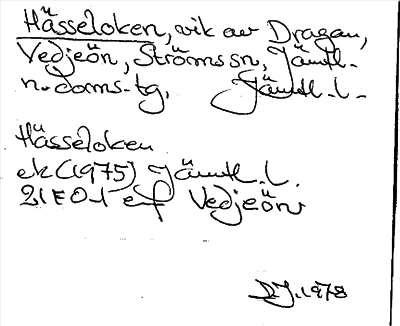 Hässeloken, vik av Dragan,
Vedjeön, Ströms sn, Jämtl.
n. doms. tg, Jämtl. l.
Hässeloken
ek (1975) Jämtl. l.
21E01 ef Vedjeön
DJ. 1978